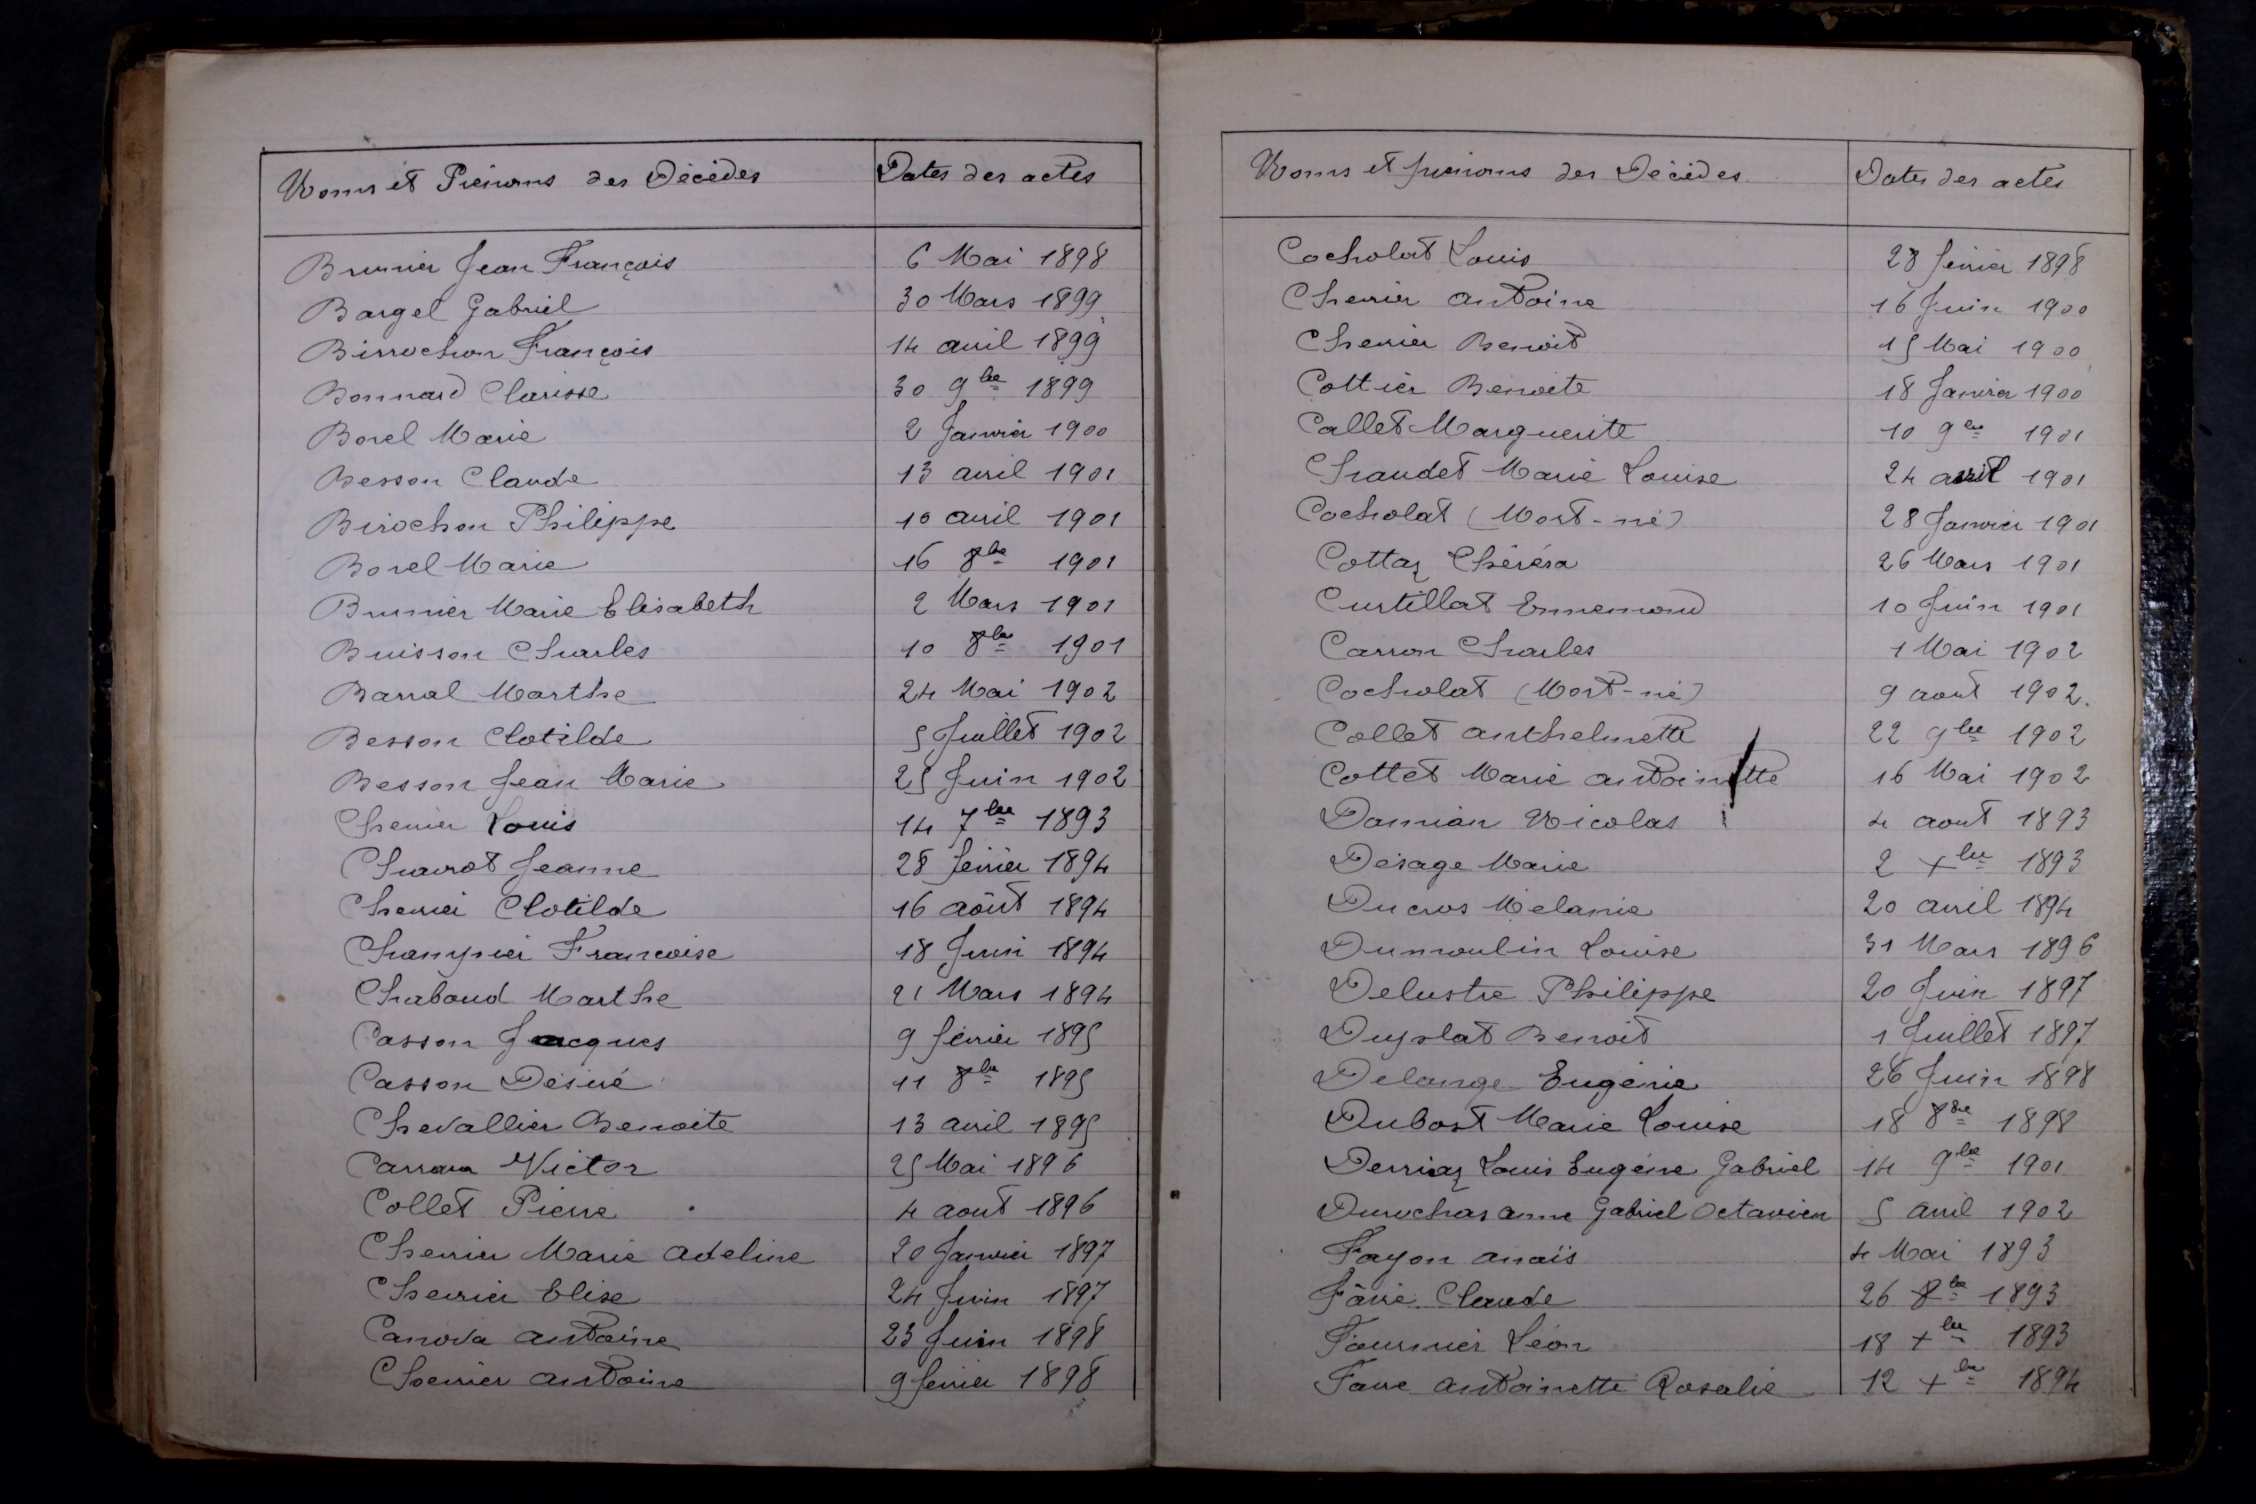 Noms et Prénoms des Décédés Dates des actes
Brunier Jean François 6 Mai 1898
Bargel Gabriel 30 Mars 1899
Birrochon François 14 avril 1899
Bonnard Clarisse 30 9bre 1899
Borel Marie 2 Janvier 1900
Besson Claude 13 avril 1901
Birochon Philippe 10 avril 1901
Borel Marie 16 8bre 1901
Brunier Marie Elisabeth 2 Mars 1901
Buisson Charles 10 8bre 1901
Barral Marthe 24 Mai 1902
Besson Clotilde 5 Juillet 1902
Besson Jean Marie 25 Juin 1902
Cherrier Louis 14 7bre 1893
Charrot Jeanne 28 février 1894
Cherrier Clotilde 16 août 1894
Champier Francoise 18 Juin 1894
Chaboud Marthe 21 Mars 1894
Casson Jacques 9 février 1895
Casson Désiré 11 8bre 1895
Chevallier Benoite 13 avril 1895
Carron Victor 25 Mai 1896
Collet Pierre 4 aout 1896
Cherrier Marie Adeline 20 Janvier 1897
Cherrier Elise 24 Juin 1897
Canova Antoine 23 Juin 1898
Cherrier Antoine 9 février 1898
Noms et prénoms des Décédés Dates des actes
Cocholat Louis 28 février 1898
Cherrier Antoine 16 Juin 1900
Cherrier Benoit 15 Mai 1900
Cottier Benoite 18 Janvier 1900
Callet Marguerite 10 9bre 1901
Chaudet Marie Louise 24 avril 1901
Cocholat (Mort-né) 28 Janvier 1901
Cottaz Thérésa 26 Mars 1901
Curtillat Ennemond 10 Juin 1901
Carron Charles 1 Mai 1902
Cocholat (Mort-né) 9 aout 1902.
Collet Anthelmette 22 9bre 1902
Cottet Marie Antoinette 16 Mai 1902
Damian Nicolas 4 aout 1893
Désage Marie 2 Xbre 1893
Ducros Mélanie 20 avril 1894
Dumoulin Louise 31 Mars 1896
Delustre Philippe 20 Juin 1897
Duplat Benoit 1 Juillet 1897
Delange Eugénie 26 Juin 1898
Dubost Marie Louise 18 8bre 1898
Derriaz Louis Eugène Gabriel 14 9bre 1901
Durochas anne Gabriel Octavien 5 avril 1902
Fayon Anaïs 4 Mai 1893
Favre Claude 26 8bre 1893
Fournier Léon 18 Xbre 1893
Favre Antoinette Rosalie 12 Xbre 1894